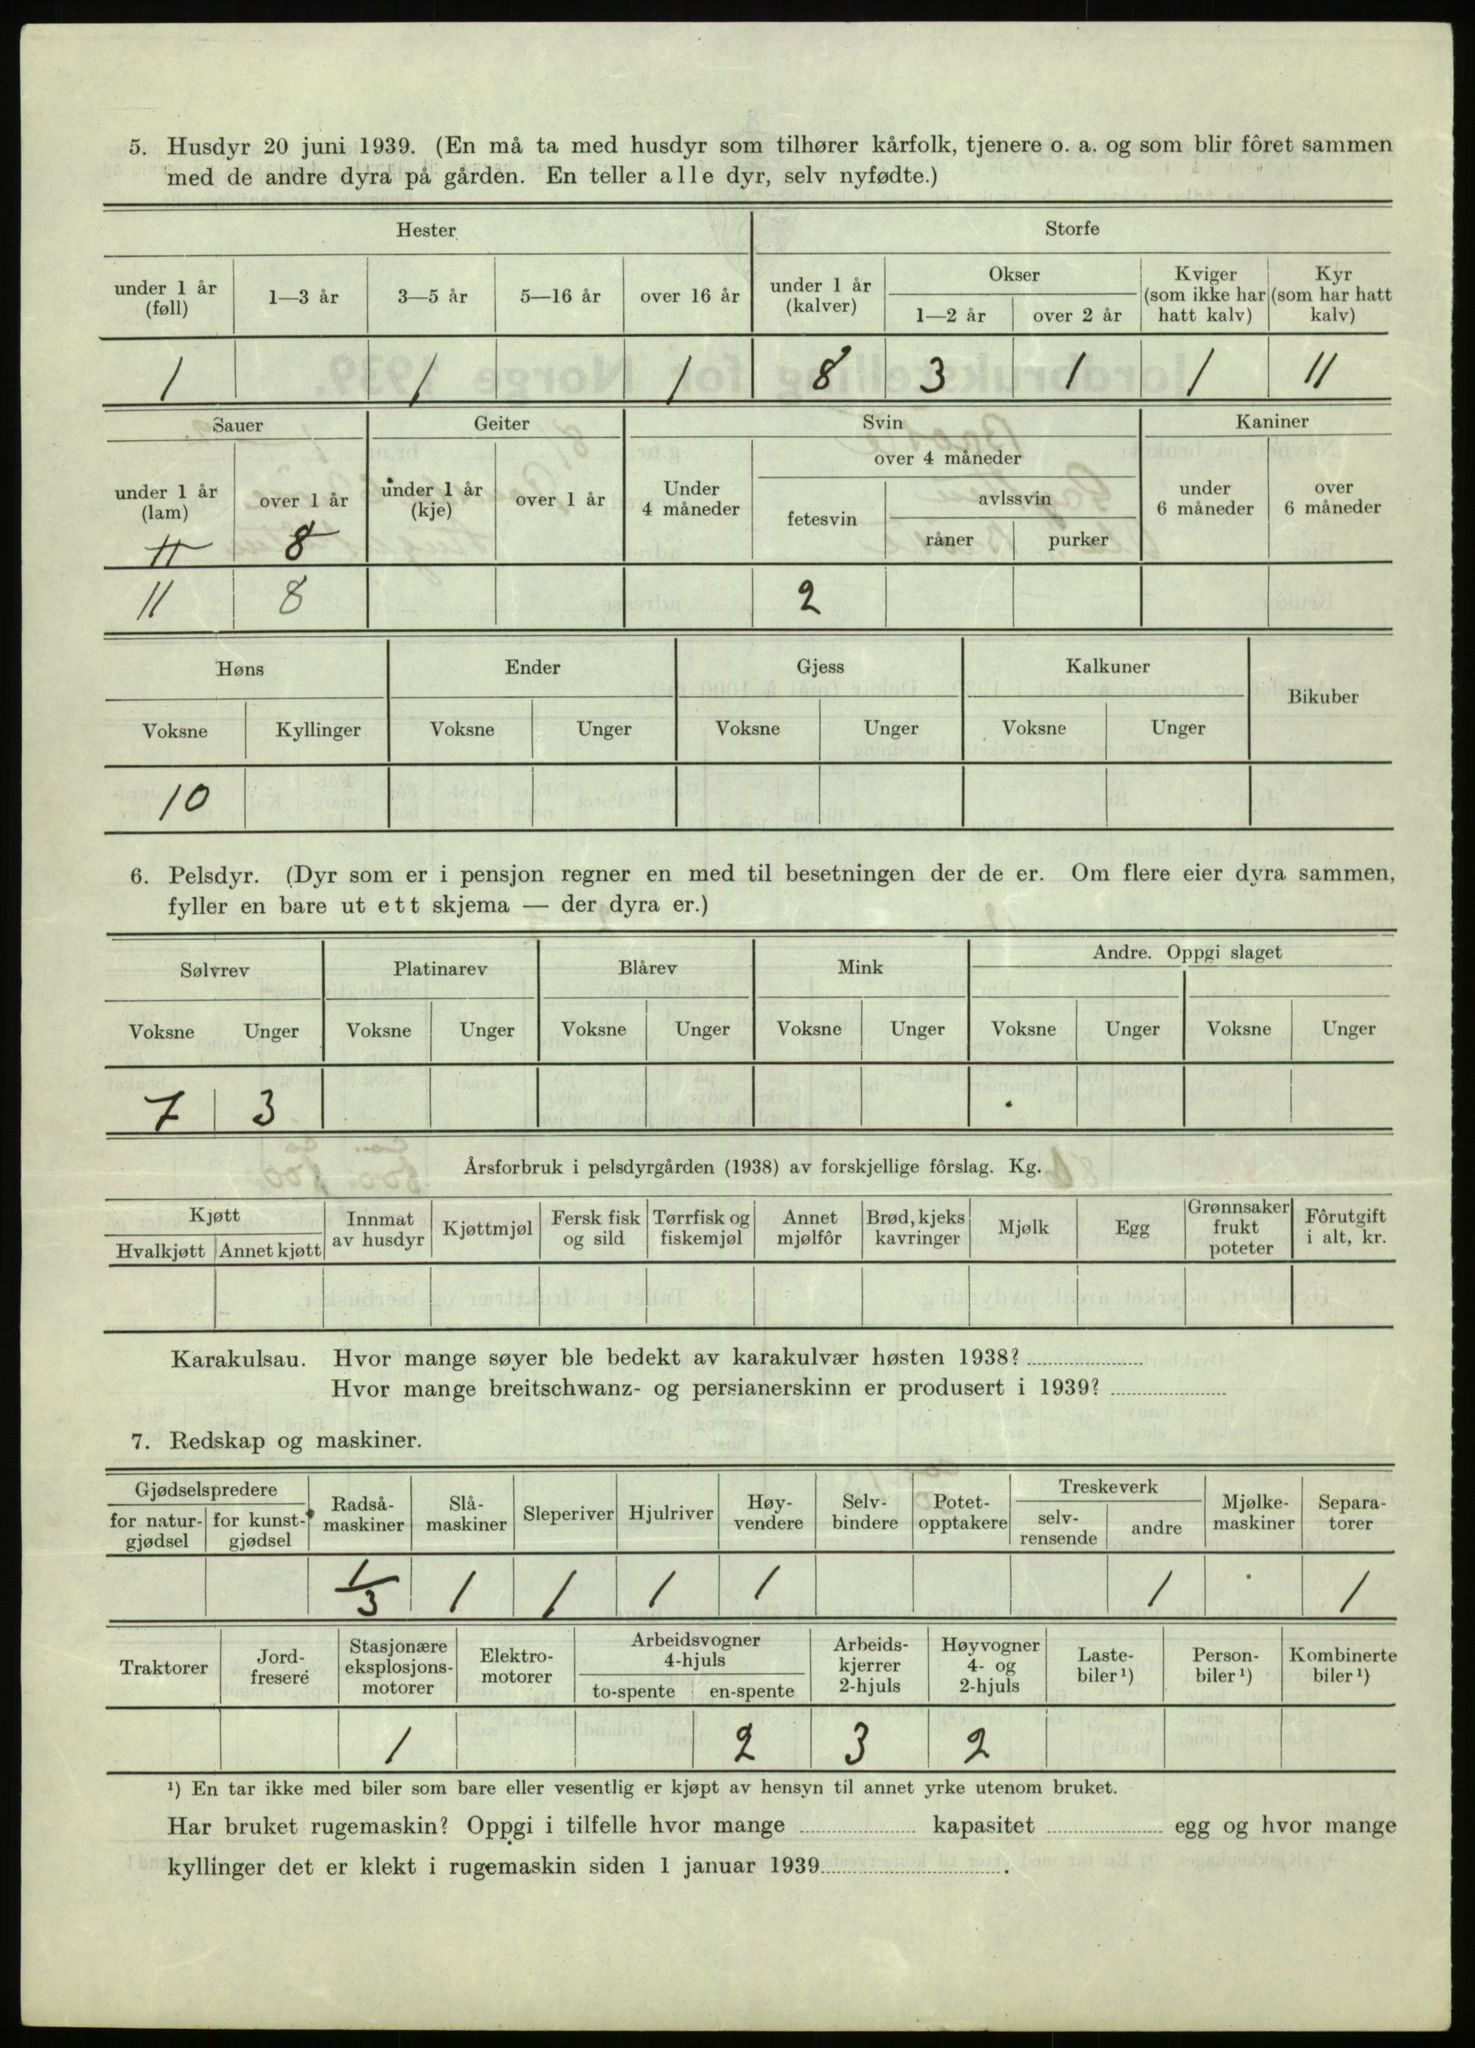 5. Husdyr 20 juni 1939. (En må ta med husdyr som tilhører kårfolk, tjenere o. a. og som blir fôret sammen
med de andre dyra på gården. En teller alle dyr, selv nyfødte.)
Hester Storfe
under 1 år (føll) 1—3 år 3—5 år 5—16 år over 16 år under 1 år (kalver) Okser 1—2 år over 2 år Kviger (som ikke har hatt kalv) Kyr (som har hatt kalv)
1 1 1 8 3 1 1 11
Sauer Geiter Svin Kaniner
over 4 måneder
under 1 år (lam) over 1 år under 1 år (kje) over 1 år Under 4 måneder fetesvin avlssvin råner purker under 6 måneder over 6 måneder
11 8
11 8 2
Høns Ender Gjess Kalkuner Bikuber
Voksne Kyllinger Voksne Unger Voksne Unger Voksne Unger
10
6. Pelsdyr. (Dyr som er i pensjon regner en med til besetningen der de er. Om flere eier dyra sammen,
fyller en bare ut ett skjema — der dyra er.)
Sølvrev Platinarev Blårev Mink Andre. Oppgi slaget
Voksne Unger Voksne Unger Voksne Unger Voksne Unger Voksne Unger Voksne Unger
7 3
Årsforbruk i pelsdyrgården (1938) av forskjellige fôrslag. Kg.
Kjøtt Hvalkjøtt Annet kjøtt Innmat av husdyr Kjøttmjøl Fersk fisk og sild Tørrfisk og fiskemjøl Annet mjølfôr Brød, kjeks kavringer Mjølk Egg Grønnsaker frukt poteter Fôrutgift i alt, kr.
Karakulsau. Hvor mange søyer ble bedekt av karakulvær høsten 1938?
Hvor mange breitschwanz- og persianerskinn er produsert i 1939?
7. Redskap og maskiner.
Gjødselspredere for natur-gjødsel for kunst-gjødsel Radså-maskiner Slå-maskiner Sleperiver Hjulriver Høy-vendere Selv-bindere Potet-opptakere Treskeverk selv-rensende andre Mjølke-maskiner Separa-torer
1/3 1 1 1 1 1 1
Traktorer Jord-fresere Stasjonære eksplosjons-motorer Elektro-motorer Arbeidsvogner 4-hjuls to-spente en-spente Arbeids-kjerrer 2-hjuls Høyvogner 4- og 2-hjuls Laste-biler ¹) Person-biler ¹) Kombinerte biler ¹)
1 2 3 2
¹) En tar ikke med biler som bare eller vesentlig er kjøpt av hensyn til annet yrke utenom bruket.
Har bruket rugemaskin? Oppgi i tilfelle hvor mange kapasitet egg og hvor mange
kyllinger det er klekt i rugemaskin siden 1 januar 1939.